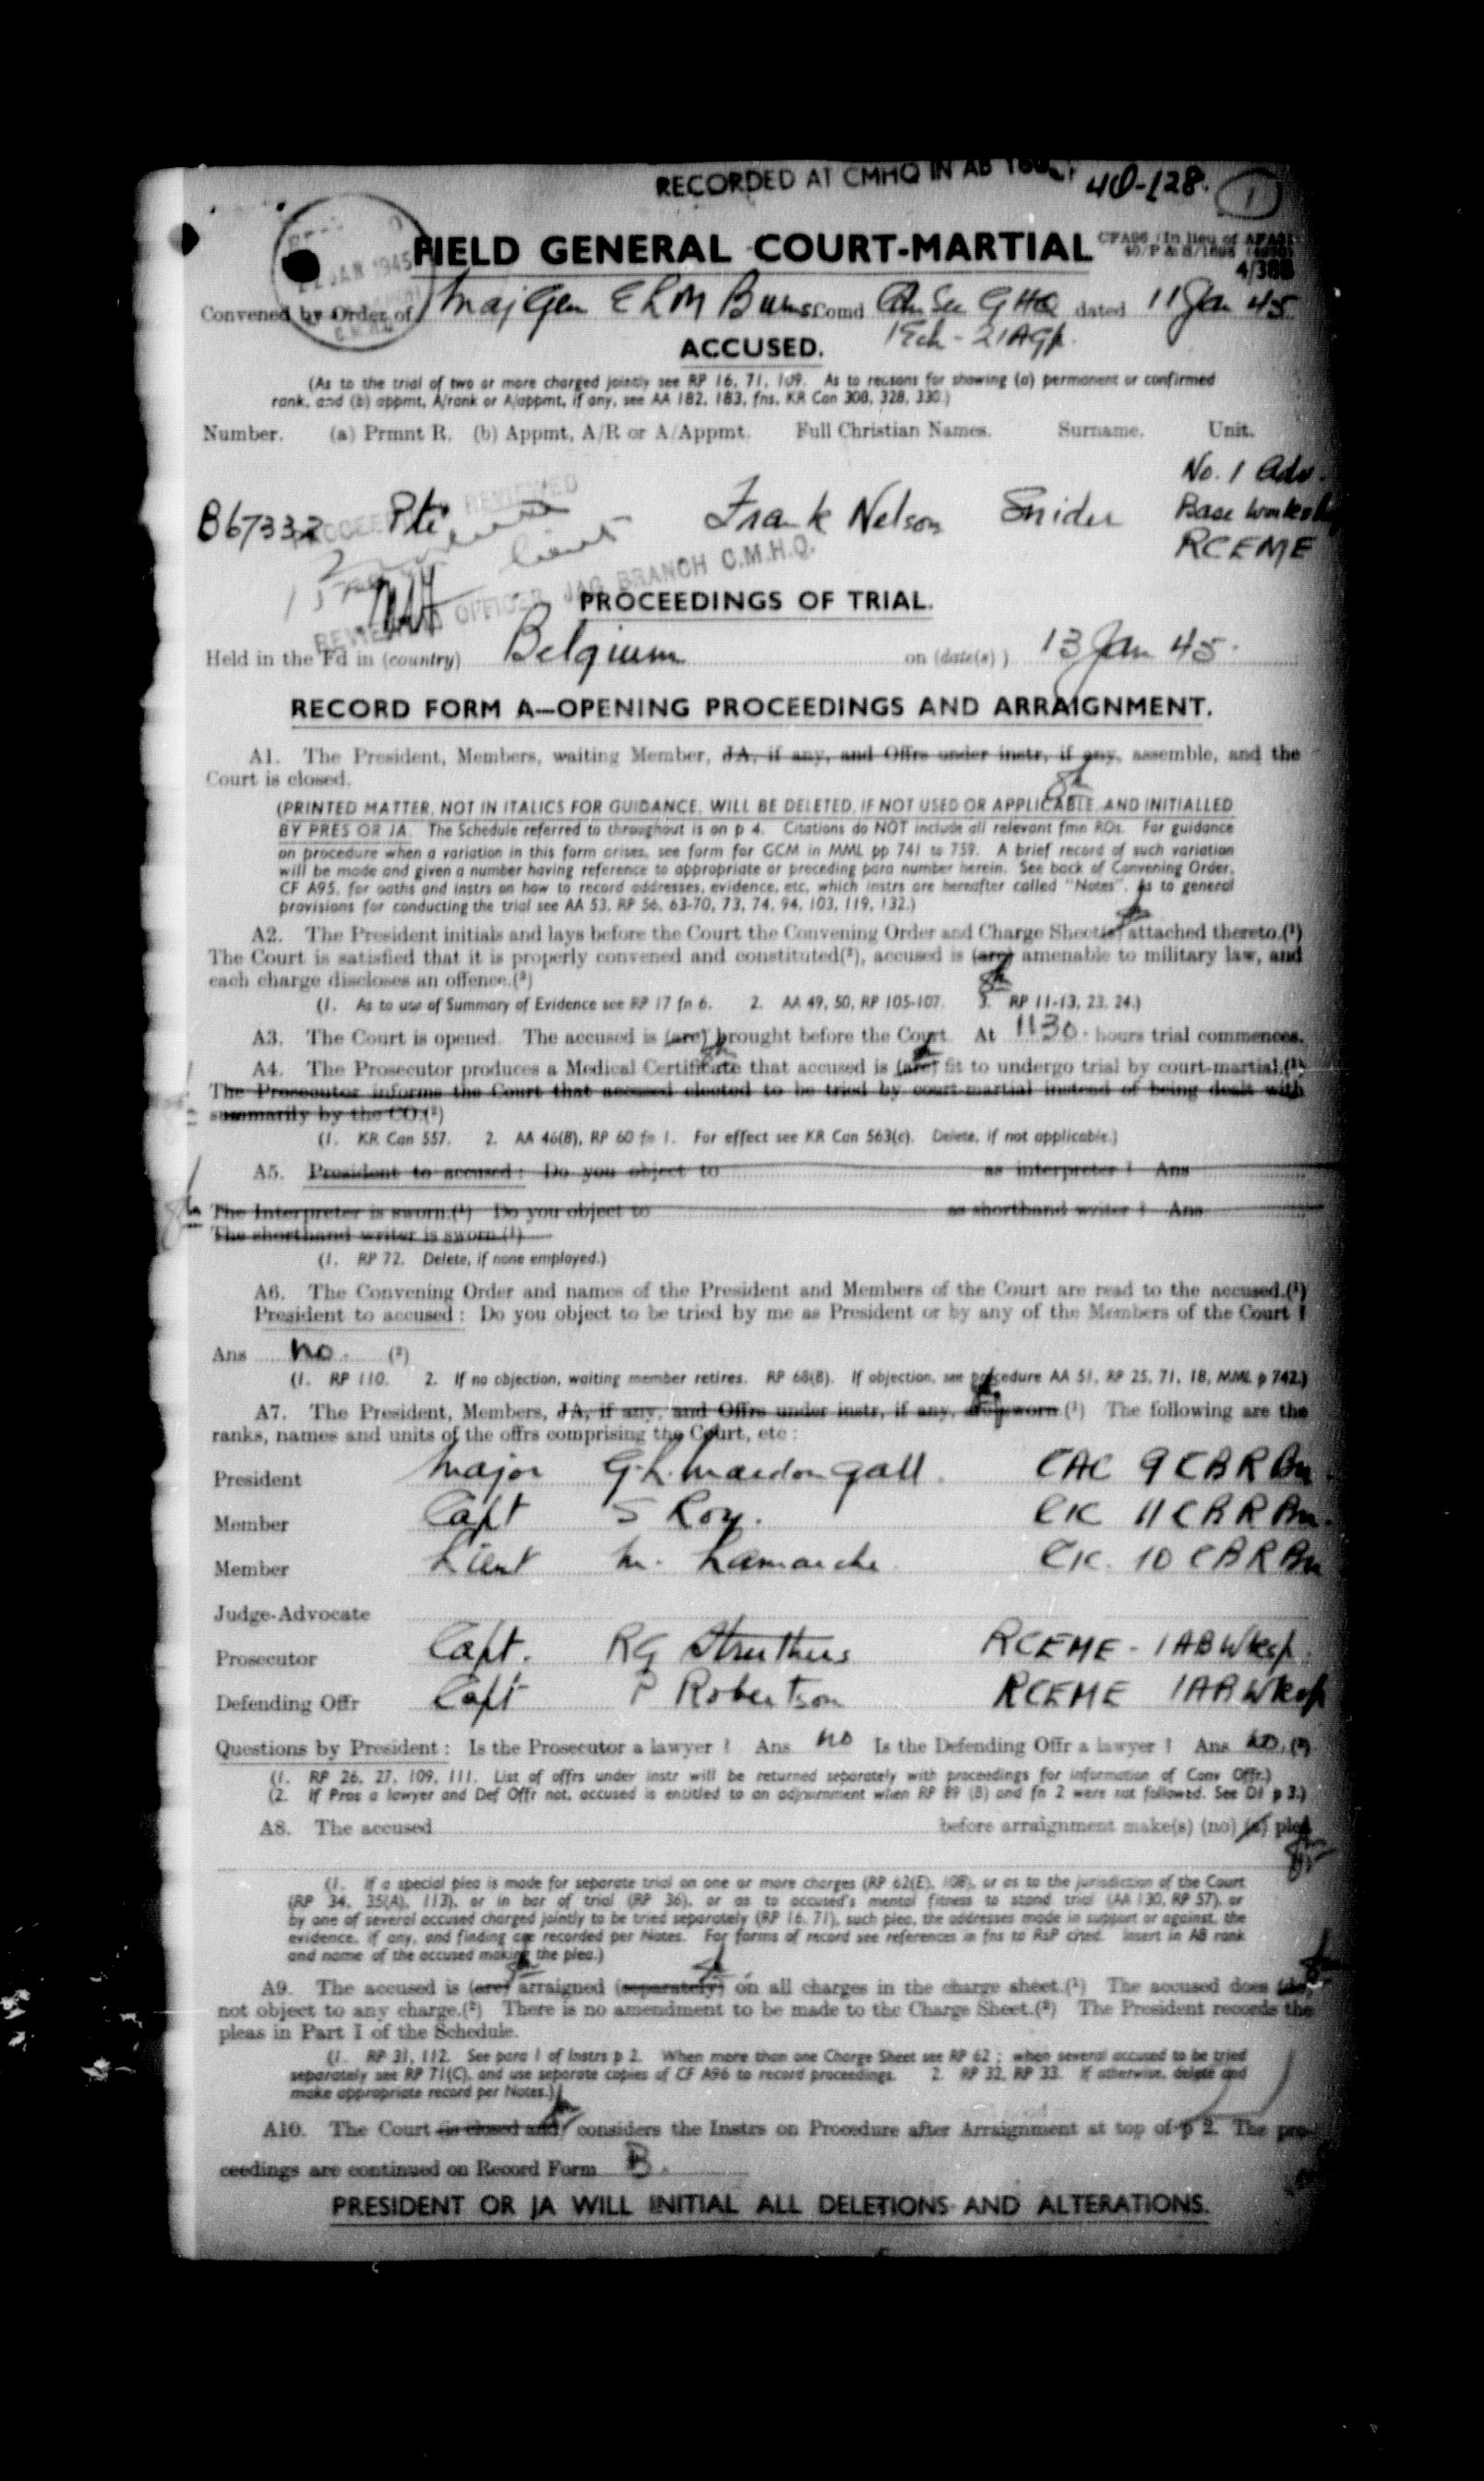 RECORDED AT CMHQ IN AB
40-128. 1
FIELD GENERAL COURT-MARTIAL
JAN 1945
4/388
Convened by Order of Maj Gen E L M Burns Comd Cdn Sec GHQ dated 11 Jan 45.
1 Ech - 21 A Gp.
ACCUSED.
(As to the trial of two or more charged jointly see RP 16, 71, 109. As to reasons for showing (a) permanent or confirmed
rank, and (b) appmt, A/rank or A/appmt, if any, see AA 182, 183, fns, KR Can 308, 328, 330.)
Number. (a) Prmnt R. (b) Appmt, A/R or A/Appmt. Full Christian Names. Surname. Unit.
No. 1 Adv.
B67332 Pte Frank Nelson Snider Base
RCEME
PROCEEDINGS REVIEWED
REVIEWING OFFICER JAG BRANCH C.M.H.Q.
PROCEEDINGS OF TRIAL.
Held in the Fd in (country) Belgium on (date(s)) 13 Jan 45.
RECORD FORM A—OPENING PROCEEDINGS AND ARRAIGNMENT.
A1. The President, Members, waiting Member, JA, if any, and Offrs under instr, if any, assemble, and the
Court is closed.
(PRINTED MATTER, NOT IN ITALICS FOR GUIDANCE, WILL BE DELETED, IF NOT USED OR APPLICABLE, AND INITIALLED
BY PRES OR JA. The Schedule referred to throughout is on p 4. Citations do NOT include all relevant fmn ROs. For guidance
on procedure when a variation in this form arises, see form for GCM in MML pp 741 to 759. A brief record of such variation
will be made and given a number having reference to appropriate or preceding para number herein. See back of Convening Order,
CF A95, for oaths and instrs on how to record addresses, evidence, etc, which instrs are hereafter called "Notes". As to general
provisions for conducting the trial see AA 53, RP 56, 63-70, 73, 74, 94, 103, 119, 132.)
A2. The President initials and lays before the Court the Convening Order and Charge Sheet(s) attached thereto.(¹)
The Court is satisfied that it is properly convened and constituted(²), accused is (are) amenable to military law, and
each charge discloses an offence.(³)
(1. As to use of Summary of Evidence see RP 17 fn 6. 2. AA 49, 50, RP 105-107. 3. RP 11-13, 23, 24.)
A3. The Court is opened. The accused is (are) brought before the Court. At 1130 hours trial commences.
A4. The Prosecutor produces a Medical Certificate that accused is (are) fit to undergo trial by court-martial.(¹)
The Prosecutor informs the Court that accused elected to be tried by court-martial instead of being dealt with
summarily by the CO.(²)
(1. KR Can 557. 2. AA 46(8), RP 60 fn 1. For effect see KR Can 563(c). Delete, if not applicable.)
A5. President to accused: Do you object to as interpreter? Ans
The Interpreter is sworn.(¹) Do you object to as shorthand writer? Ans
The shorthand writer is sworn.(¹)
(1. RP 72. Delete, if none employed.)
A6. The Convening Order and names of the President and Members of the Court are read to the accused.(¹)
President to accused: Do you object to be tried by me as President or by any of the Members of the Court?
Ans no. (²)
(1. RP 110. 2. If no objection, waiting member retires. RP 68(B). If objection, see procedure AA 51, RP 25, 71, 18, MML p 742.)
A7. The President, Members, JA, if any, and Offrs under instr, if any, are sworn.(¹) The following are the
ranks, names and units of the offrs comprising the Court, etc:
President Major G. L. Macdougall CAC 9 CBR Bn.
Member Capt S Roy. CIC 11 CBR Bn.
Member Lieut M. Lamarche CIC. 10 CBR Bn
Judge-Advocate
Prosecutor Capt. RG Struthers RCEME - 1 AB Wksp.
Defending Offr Capt P Robertson RCEME 1 AB Wksp
Questions by President: Is the Prosecutor a lawyer? Ans no Is the Defending Offr a lawyer? Ans no.(²)
(1. RP 26, 27, 109, 111. List of offrs under instr will be returned separately with proceedings for information of Conv Offr.)
(2. If Pros a lawyer and Def Offr not, accused is entitled to an adjournment when RP 89 (B) and fn 2 were not followed. See D1 p 3.)
A8. The accused before arraignment make(s) (no) (a) plea
(1. If a special plea is made for separate trial on one or more charges (RP 62(E), 108), or as to the jurisdiction of the Court
(RP 34, 35(A), 113), or in bar of trial (RP 36), or as to accused's mental fitness to stand trial (AA 130, RP 57), or
by one of several accused charged jointly to be tried separately (RP 16, 71), such plea, the addresses made in support or against, the
evidence, if any, and finding are recorded per Notes. For forms of record see references in fns to RsP cited. Insert in A8 rank
and name of the accused making the plea.)
A9. The accused is (are) arraigned (separately) on all charges in the charge sheet.(¹) The accused does (do)
not object to any charge.(²) There is no amendment to be made to the Charge Sheet.(²) The President records the
pleas in Part I of the Schedule.
(1. RP 31, 112. See para 1 of Instrs p 2. When more than one Charge Sheet see RP 62; when several accused to be tried
separately see RP 71(C), and use separate copies of CF A96 to record proceedings. 2. RP 32, RP 33. If otherwise, delete and
make appropriate record per Notes.)
A10. The Court (is closed and) considers the Instrs on Procedure after Arraignment at top of p 2. The pro-
ceedings are continued on Record Form B.
PRESIDENT OR JA WILL INITIAL ALL DELETIONS AND ALTERATIONS.